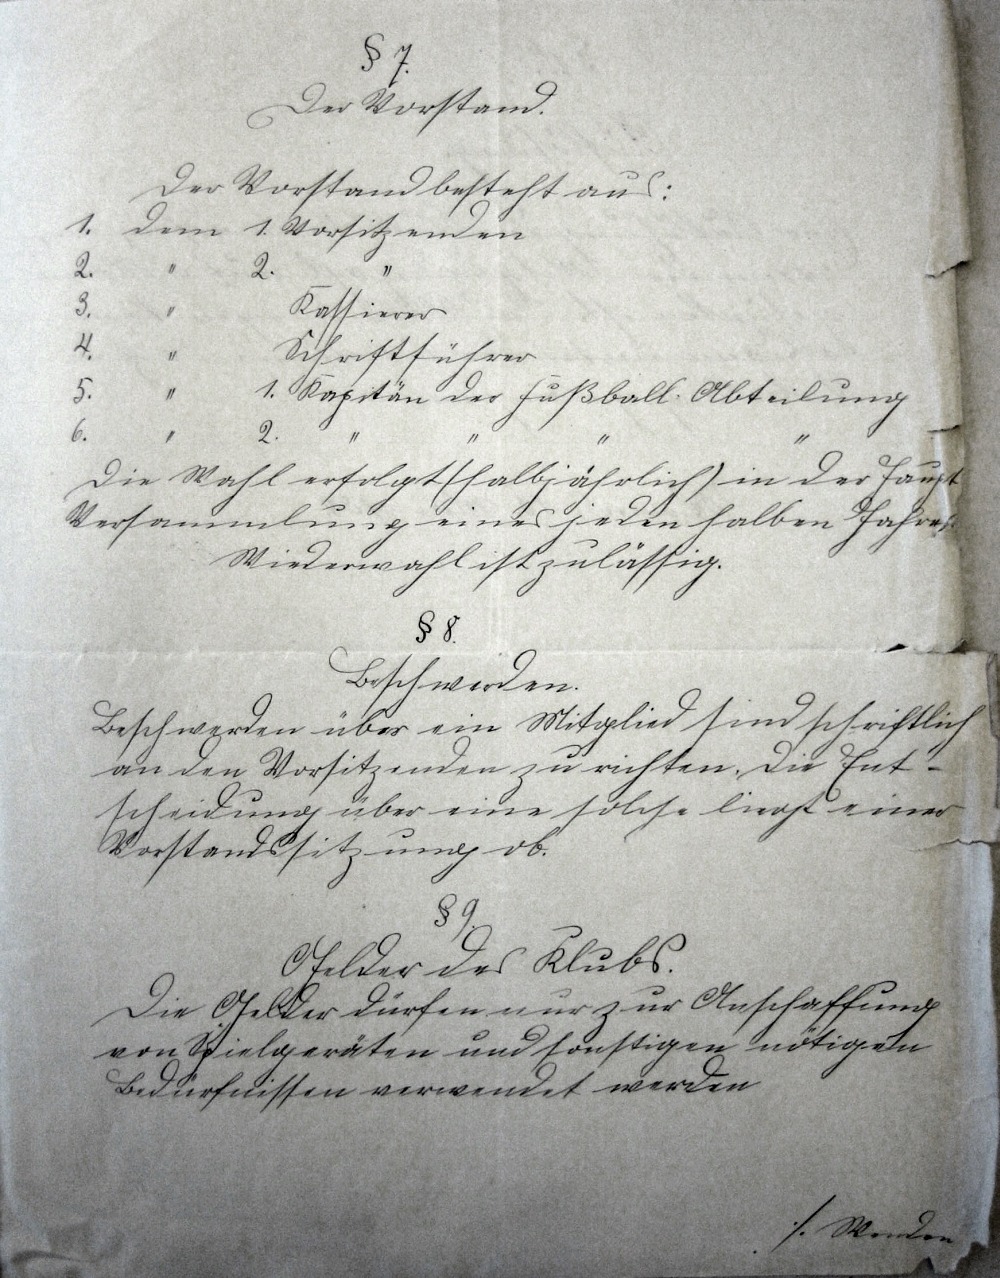 § 7.
Der Vorstand.
Der Vorstand besteht aus:
1. dem 1. Vorsitzenden
2. " 2. "
3. " Kassierer
4. " Schriftführer
5. " 1. Kapitän der Fußball-Abteilung
6. " 2. " " " "
Die Wahl erfolgt (halbjährlich) in der Haupt
Versammlung eines jeden halben Jahres.
Wiederwahl ist zulässig.
§ 8.
Beschwerden.
Beschwerden über ein Mitglied sind schriftlich
an den Vorsitzenden zu richten. Die Ent-
scheidung über eine solche liegt einer
Vorstandssitzung ob.
§ 9.
Gelder des Klubs.
Die Gelder dürfen nur zur Anschaffung
von Spielgeräten und sonstigen nötigen
Bedürfnissen verwendet werden
./. Wenden